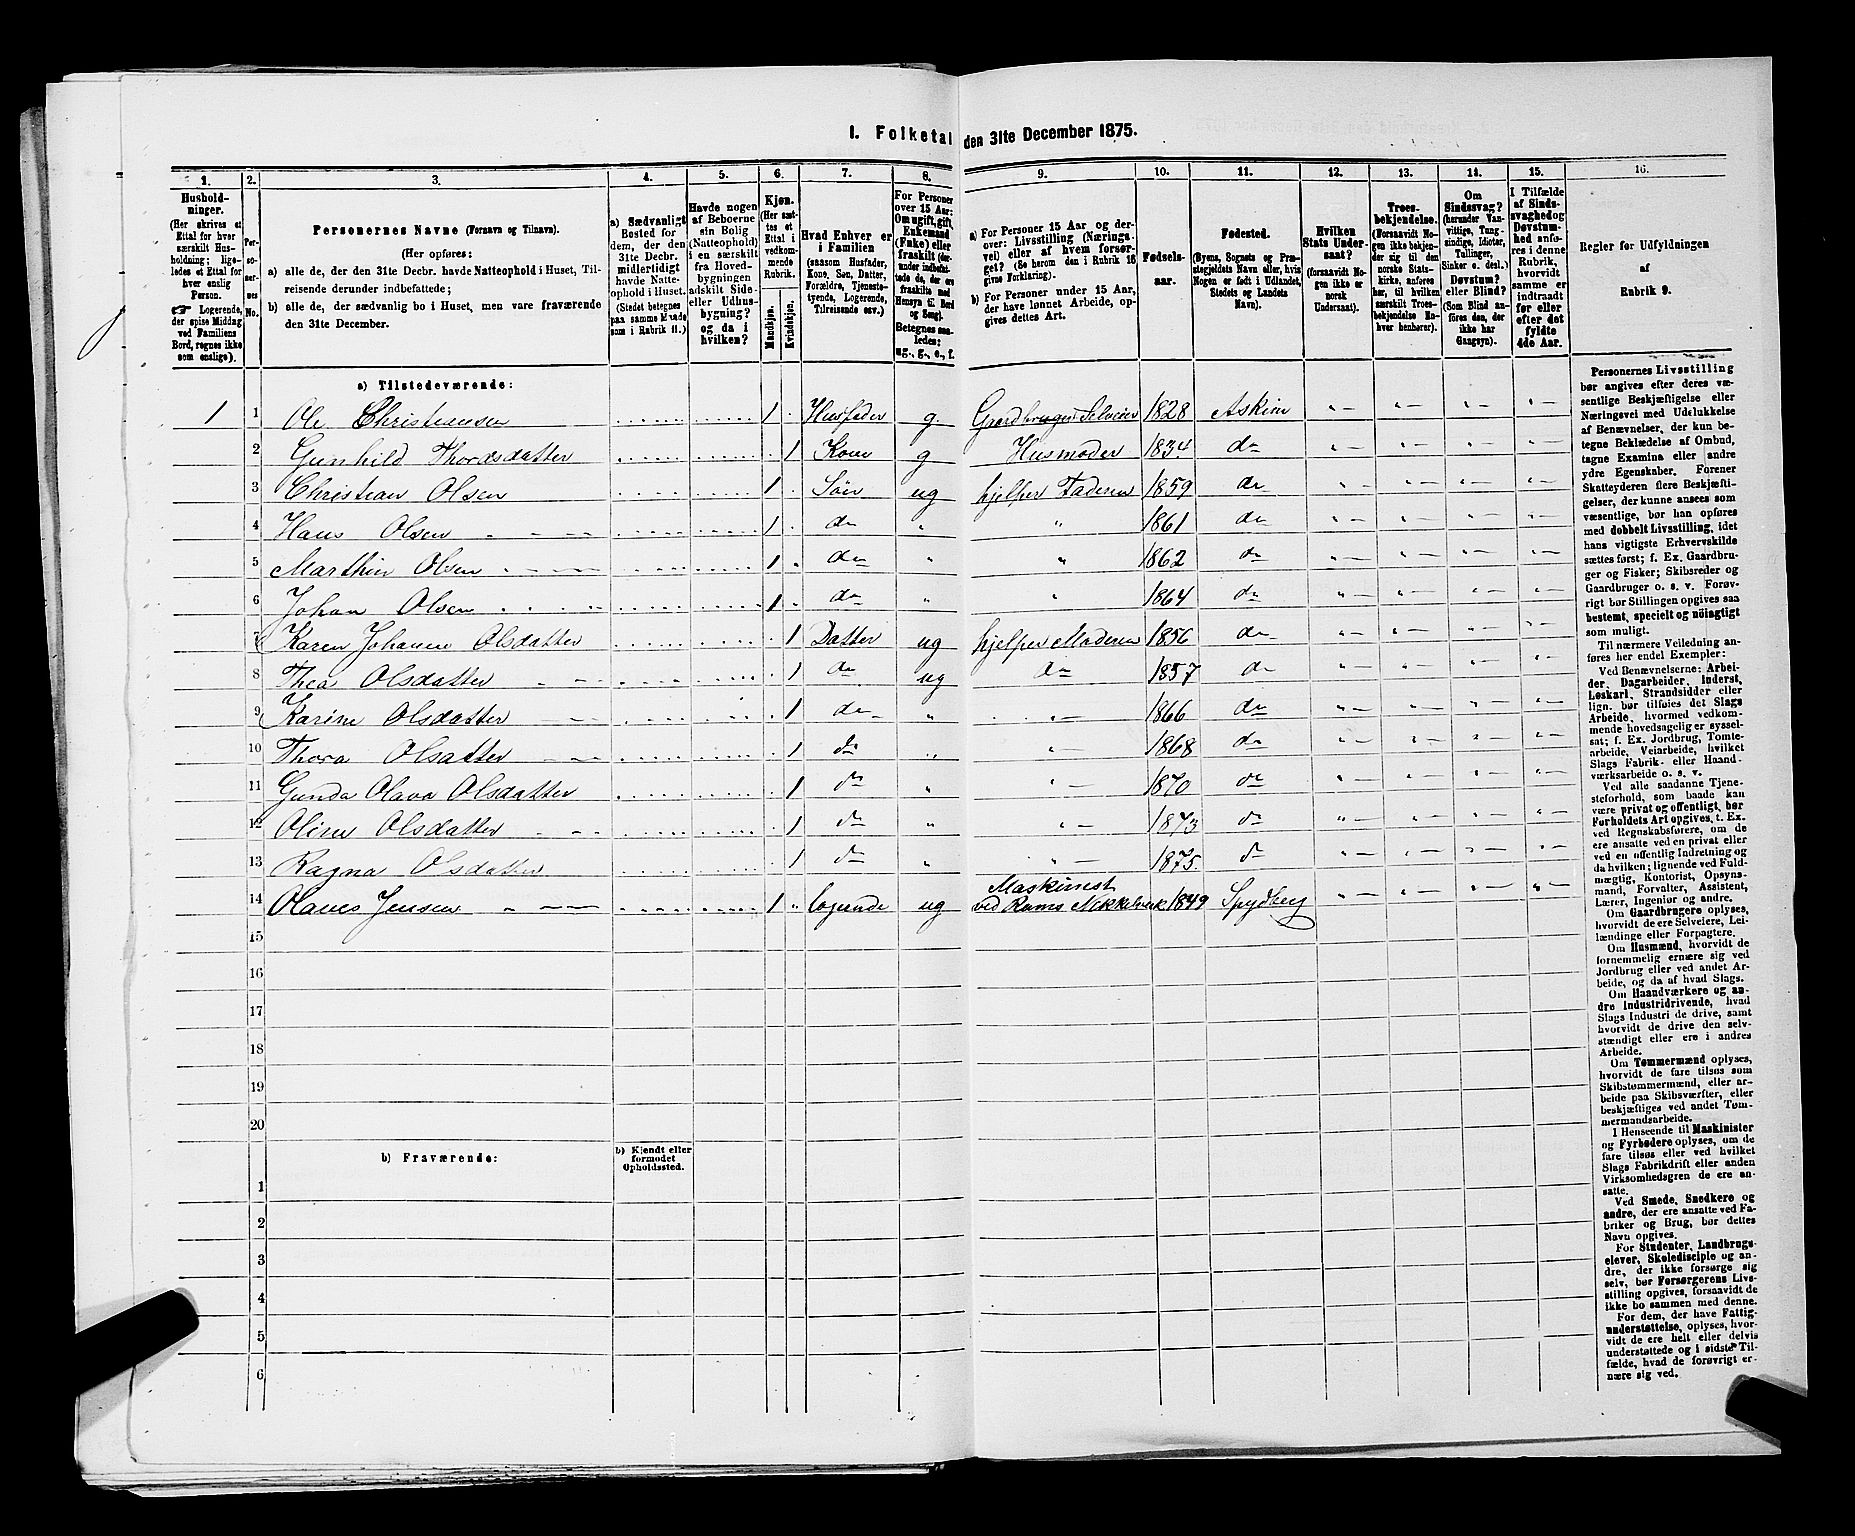 I. Folketal den 31te December 1875.
1. 2. 3. 4. 5. 6. 7. 8. 9. 10. 11. 12. 13. 14. 15. 16.
Husholdninger.
(Her skrives et
Ettal for hver
særskilt Husholdning;
ligeledes et Ettal for
hver enslig
Person.
☞ Logerende,
der spise Middag
ved Familiens
Bord, regnes ikke
som enslige).
Personernes No.
Personernes Navne (Fornavn og Tilnavn).
(Her opføres:
a) alle de, der den 31te Decbr. havde Natteophold i Huset, Tilreisende derunder indbefattede;
b) alle de, der sædvanlig bo i Huset, men vare fraværende
den 31te December.
a) Sædvanligt
Bosted for
dem, der den
31te Decbr.
midlertidigt
havde Natteophold i Huset.
(Stedet betegnes
paa samme Maade
som i Rubrik 11.)
Havde nogen
af Beboerne
sin Bolig
(Natteophold)
i en særskilt
fra Hovedbygningen
adskilt Side- eller Udhusbygning?
og da i
hvilken?
Kjøn.
(Her sættes et
Ettal i
vedkommende
Rubrik.
Mandkjøn. Kvindekjøn.
Hvad Enhver er
i Familien
(saasom Husfader,
Kone, Søn, Datter,
Forældre, Tjenestetyende, Logerende,
Tilreisende osv.)
For Personer
over 15 Aar:
Om ugift, gift,
Enkemand
(Enke) eller
fraskilt (derunder indbefattede de, der ere
fraskilte med
Hensyn til Bord
og Seng).
Betegnes saaledes:
ug., g., e., f.
a) For Personer 15 Aar og derover: Livsstilling (Næringsvei) eller af hvem forsørget? (Se herom den i Rubrik 16
givne Forklaring).
b) For Personer under 15 Aar,
der have lønnet Arbeide, opgives dettes Art.
Fødselsaar.
Fødested.
(Byens, Sognets og Præstegjeldets Navn eller, hvis
Nogen er født i Udlandet,
Stedets og Landets
Navn).
Hvilken
Stats Undersaat?
(forsaavidt Nogen ikke er
norsk
Undersaat).
Troesbekjendelse.
(Forsaavidt Nogen ikke bekjender sig til den
norske Statskirke, anføres
her, til hvilken
særskilt Troesbekjendelse Enhver henhører).
Om
Sindssvag?
(herunder Vanvittige, Tungsindige, Idioter,
Tullinger,
Sinker o. desl.)
Døvstum?
eller Blind?
(Som Blind anføres den, der
ikke har
Gangsyn).
I Tilfælde
af Sindssvaghed og
Døvstumhed anføres i denne
Rubrik,
hvorvidt
samme er
indtraadt
før eller
efter det
fyldte
4de Aar.
Regler før Udfyldningen
af
Rubrik 9.
a) Tilstedeværende:
1 1 Ole Christiansen 1 Husfader g Gaardbruger Selveier 1828 Askim
2 Gunhild Thordsdatter 1 Kone g Husmoder 1834 do
3 Christian Olsen 1 Søn ug hjelper Faderen 1859 do
4 Hans Olsen 1 do " " 1861 do
5 Marthin Olsen 1 do " " 1862 do
6 Johan Olsen 1 do " " 1864 do
7 Karen Johanne Olsdatter 1 Datter ug hjelper Moderen 1856 do
8 Thea Olsdatter 1 do ug do 1857 do
9 Karine Olsdatter 1 do " " 1866 do
10 Thora Olsatter 1 do " " 1868 do
11 Gunda Olava Olsdatter 1 do " " 1870 do
12 Oline Olsdatter 1 do " " 1873 do
13 Ragna Olsdatter 1 do " " 1875 do
14 Olaves Jensen 1 " logerende ug Maskinist
ved 1849 Spydberg
15
16
17
18
19
20
b) Fraværende: b) Kjendt eller
formodet
Opholdssted.
1
2
3
4
5
6
Personernes Livsstilling
bør angives efter deres væsentlige Beskjæftigelse eller
Næringsvei med Udelukkelse
af Benævnelser, der kun betegne Beklædelse af Ombud,
tagne Examina eller andre
ydre Egenskaber. Forener
Skatteyderen flere Beskjæftigelser, der kunne ansees som
væsentlige, bør han opføres
med dobbelt Livsstilling, idet
hans vigtigste Erhvervskilde
sættes først; f. Ex. Gaardbruger og Fisker; Skibsreder og
Gaardbruger o. s. v. Forøvrigt bør Stillingen opgives saa
bestemt, specielt og nøiagtigt
som muligt.
Til nærmere Veiledning anføres her endel Exempler:
Ved Benævnelserne: Arbeider, Dagarbeider, Inderst,
Løskarl, Strandsidder eller
lign. bør tilføies det Slags
Arbeide, hvormed vedkommende hovedsagelig er sysselsat; f. Ex. Jordbrug, Tomtearbeide, Veiarbeide, hvilket
Slags Fabrik- eller Haandværksarbeide o. s. v.
Ved alle saadanne Tjenesteforhold, som baade kan
være privat og offentligt, bør
Forholdets Art opgives, t. Ex.
ved Regnskabsførere, om de
ere ansatte ved en privat eller
ved en offentlig Indretning og
da hvilken; lignende ved Fuldmægtig, Kontorist, Opsynsmand, Forvalter, Assistent,
Lærer, Ingeniør og andre.
Om Gaardbrugere oplyses,
hvorvidt de ere Selveiere, Leilændinge eller Forpagtere.
Om Husmænd, hvorvidt de
fornemmelig ernære sig ved
Jordbrug eller ved andet Arbeide, og da af hvad Slags.
Om Haandværkere og andre Industridrivende, hvad
Slags Industri de drive, samt
hvorvidt de drive den selvstændigt eller ere i andres
Arbeide.
Om Tømmermænd oplyses,
hvorvidt de fare tilsøs som
Skibstømmermænd, eller arbeide paa Skibsværfter, eller
beskjæftiges ved andet Tømmermandsarbeide.
I Henseende til Maskinister
og Fyrbødere oplyses, om de
fare tilsøs eller ved hvilket
Slags Fabrikdrift eller anden
Virksomhedsgren de ere ansatte.
Ved Smede, Snedkere og
andre, der ere ansatte ved Fabriker og Brug, bør dettes
Navn opgives.
For Studenter, Landbrugselever, Skoledisciple og andre, der ikke forsørge sig
selv, bør Forsørgerens Livsstilling opgives, forsaavidt de
ikke bo sammen med denne.
For dem, der have Fattigunderstøttelse, oplyses, hvorvidt de ere helt eller delvis
understøttede og i sidste Tilfælde, hvad de forøvrigt ernære sig ved.